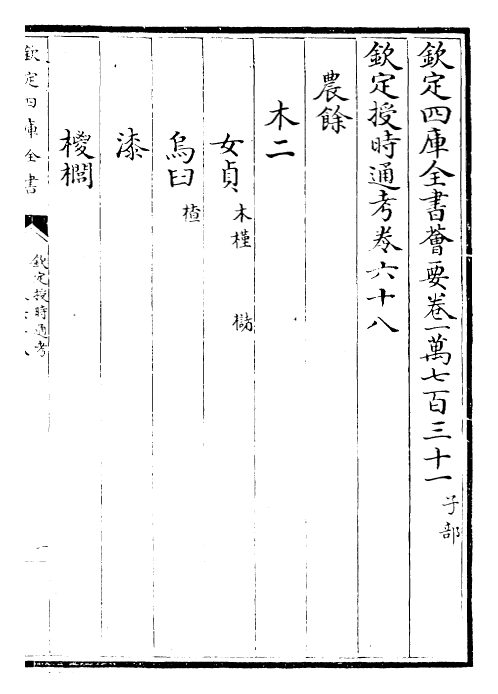 欽定四庫全書薈要卷一萬七百三十一 子部
欽定授時通考卷六十八
農餘
木二
女貞 木槿 欓
烏臼 樝
漆
椶櫚
欽定四庫全書
欽定授時通考
一